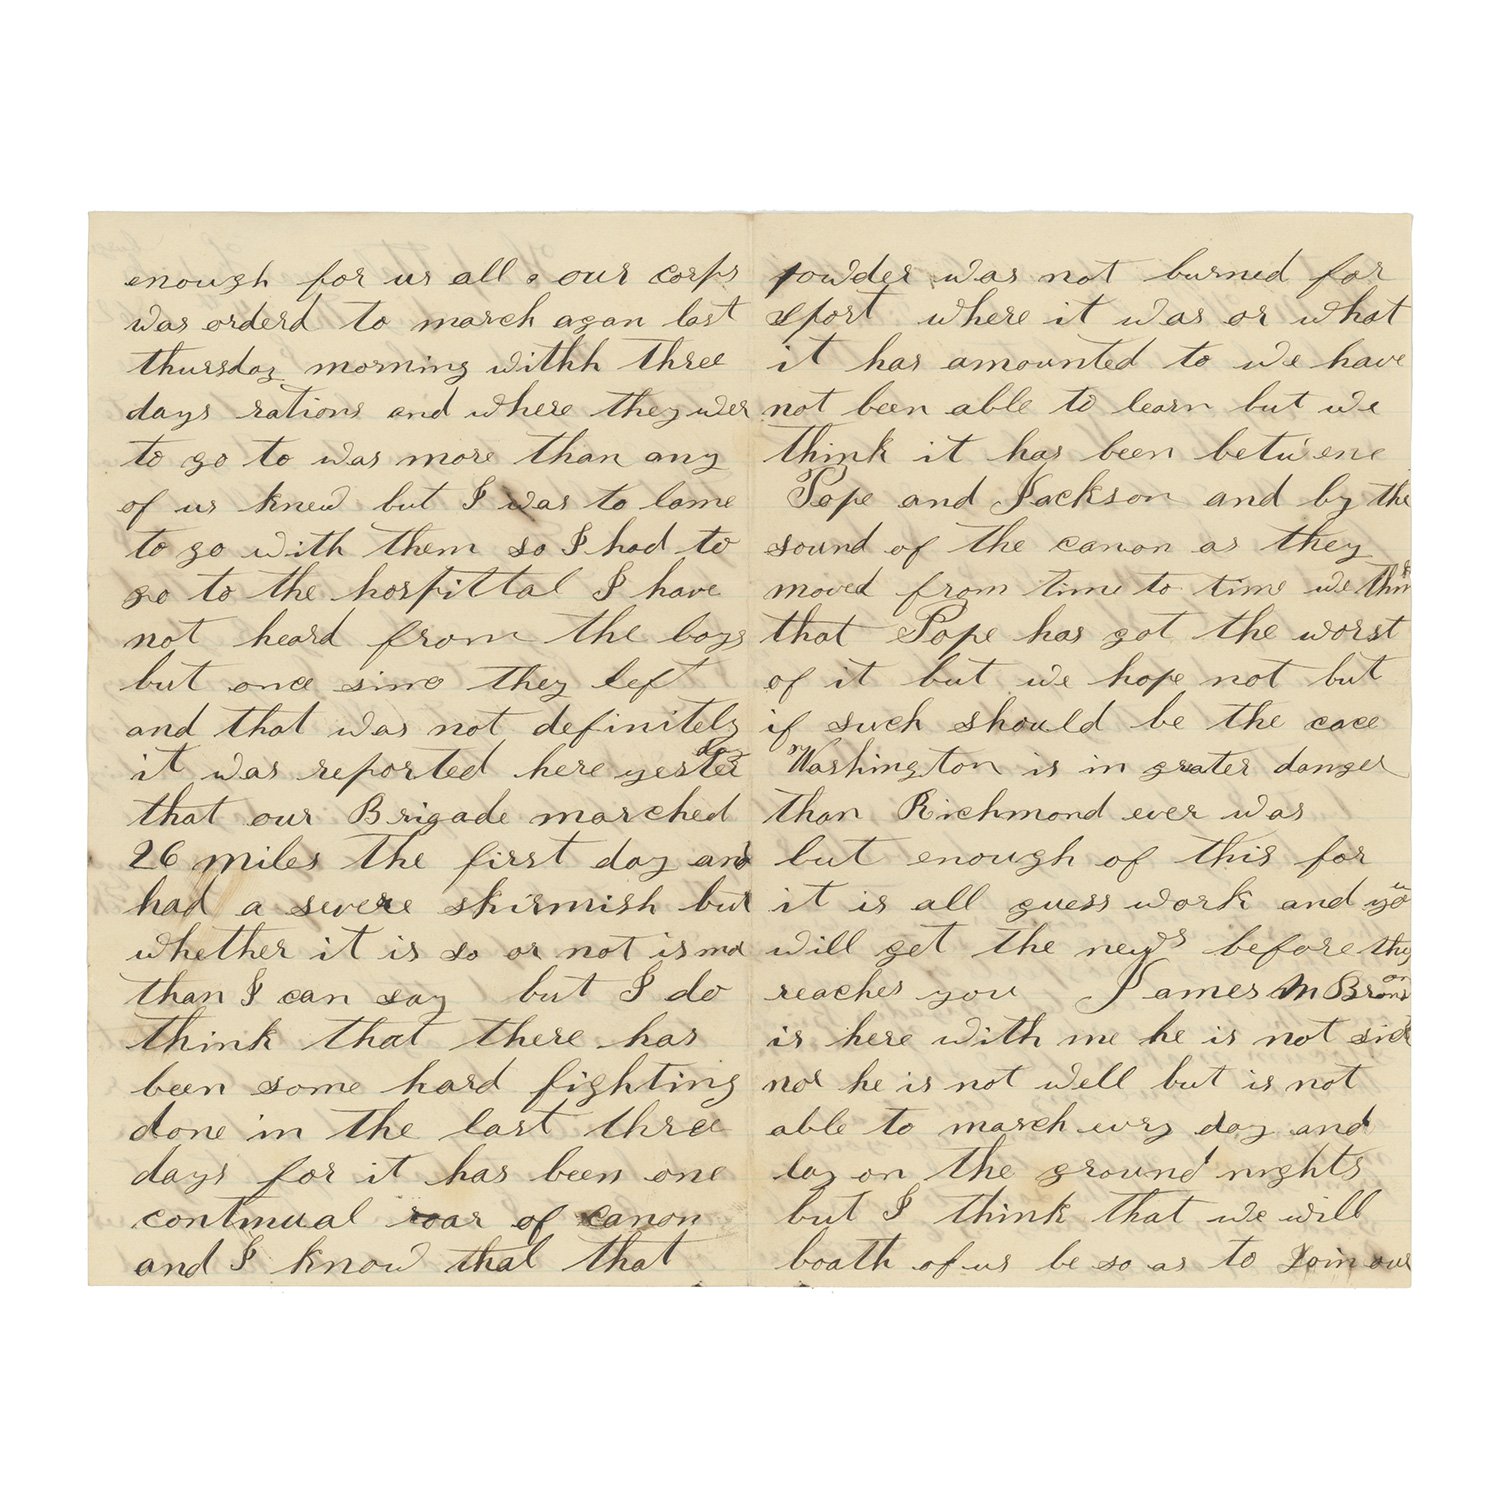 enough for us all our corps
was orderd to march agan last
thursday morning withh three
days rations and where they wer
to go to was more than any
of us knew but I was to lame
to go with them so I had to
go to the hospittal I have
not heard from the boys
but once since they left
and that was not definitely
it was reported here yesterday
that our Brigade marched
26 miles the first day and
had a severe skirmish but
whether it is so or not is mor
than I can say but I do
think that there has
been some hard fighting
done in the last three
days for it has been one
continual roar of canon
and I know that that
powder was not burned for
sport where it was or what
it has amounted to we have
not been able to learn but we
think it has been betwene
Pope and Jackson and by the
sound of the canon as they
moved from time to time we think
that Pope has got the worst
of it but we hope not but
if such should be the cace
Washington is in grater danger
than Richmond ever was
but enough of this for
it is all guess work and you
will get the news before they
reaches you James M Brown
is here with me he is not sick
nor he is not well but is not
able to march evry day and
lay on the ground nights
but I think that we will
boath of us be so as to Join our